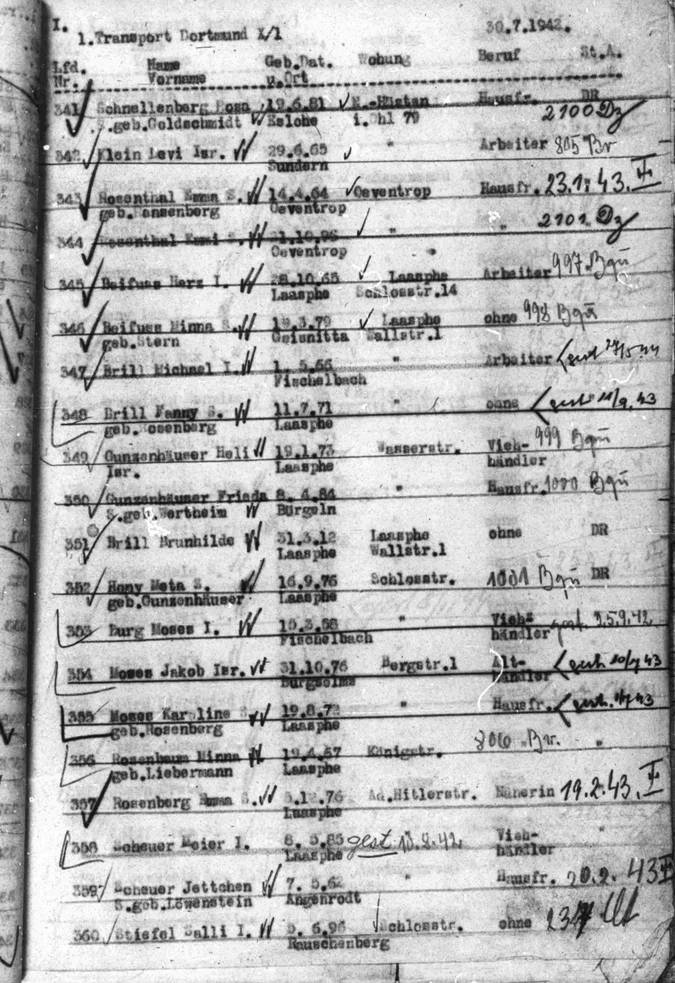 I.
30.7.1942.
1.Transport Dortmund X/1
Lfd. Name Geb.Dat. Wohung Beruf St.A.
Nr. Vorname u.Ort
341 Schnellenberg Rosa 19.6.81 N.-Hüsten Hausfr. DR
S.geb.Goldschmidt Eslohe i.Ohl 79 2100 Dz
342 Klein Levi Isr. 29.6.65 " Arbeiter 805 Br
Sundern
343 Rosenthal Emma S. 14.4.64 Oeventrop Hausfr. 23.1.43. I
geb. Oeventrop
344 Rosenthal Emmi S. 21.10.96 " " 2101 Dz
Oeventrop
345 Beifuss Herz I. 28.10.65 Laasphe Arbeiter 997 Bqü
Laasphe Schlosstr.14
346 Beifuss Minna S. 19.3.79 Laasphe ohne 998 Bqü
geb.Stern Geisnitta Wallstr.1
347 Brill Michael I. 1. 5.66 " Arbeiter
Fischelbach
348 Brill Fanny S. 11.7.71 " ohne
geb.Rosenberg Laasphe
349 Gunzenhäuser Heli 19.1.73 Wasserstr. Vieh- 999 Bqü
Isr. Laasphe händler
350 Gunzenhäuser Frieda 8. 4.84 " Hausfr. 1000 Bqü
S.geb.Wertheim Bürgeln
351 Brill Brunhilde 31.3.12 Laasphe ohne DR
Laasphe Wallstr.1
352 Hony Meta S. 16.9.76 Schlosstr. 1001 Bqü DR
geb.Gunzenhäuser Laasphe
353 Burg Moses I. 15.3.68 " Vieh-
Fischelbach händler gest. 25.9.42
354 Moses Jakob Isr. 31.10.76 Bergstr.1 Alt- gest. 20/7 43
Burgsolms händler
355 Moses Karoline S. 19.8.72 " Hausfr. 43
geb.Rosenberg Laasphe
356 Rosenbaum Minna 19.4.67 Königstr. 806 Br. "
geb.Liebermann Laasphe
357 Rosenberg Emma S. 5.12.76 Ad.Hitlerstr. Näherin 19.2.43. I
Laasphe
358 Scheuer Meier I. 8. 5.85 gest 18.8.42. Vieh- "
Laasphe händler
359 Scheuer Jettchen 7. 5.62 " Hausfr. 20.2. 43
S.geb.Löwenstein Angenrodt
360 Stiefel Salli I. 5. 6.96 Schlosstr. ohne
Rauschenberg